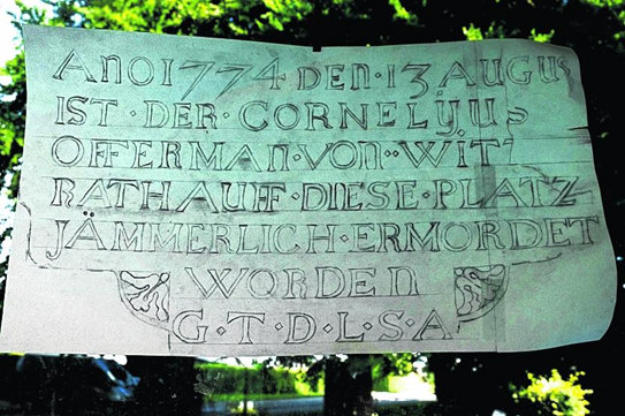 ANOI774 DEN·13·AUGUS
IST·DER·CORNELŸUS
OFFERMAN·VON··WIT
RATH AUFF·DIESE·PLATZ
JÄMMERLICH·ERMORDET
WORDEN
G·T·D·L·S·A